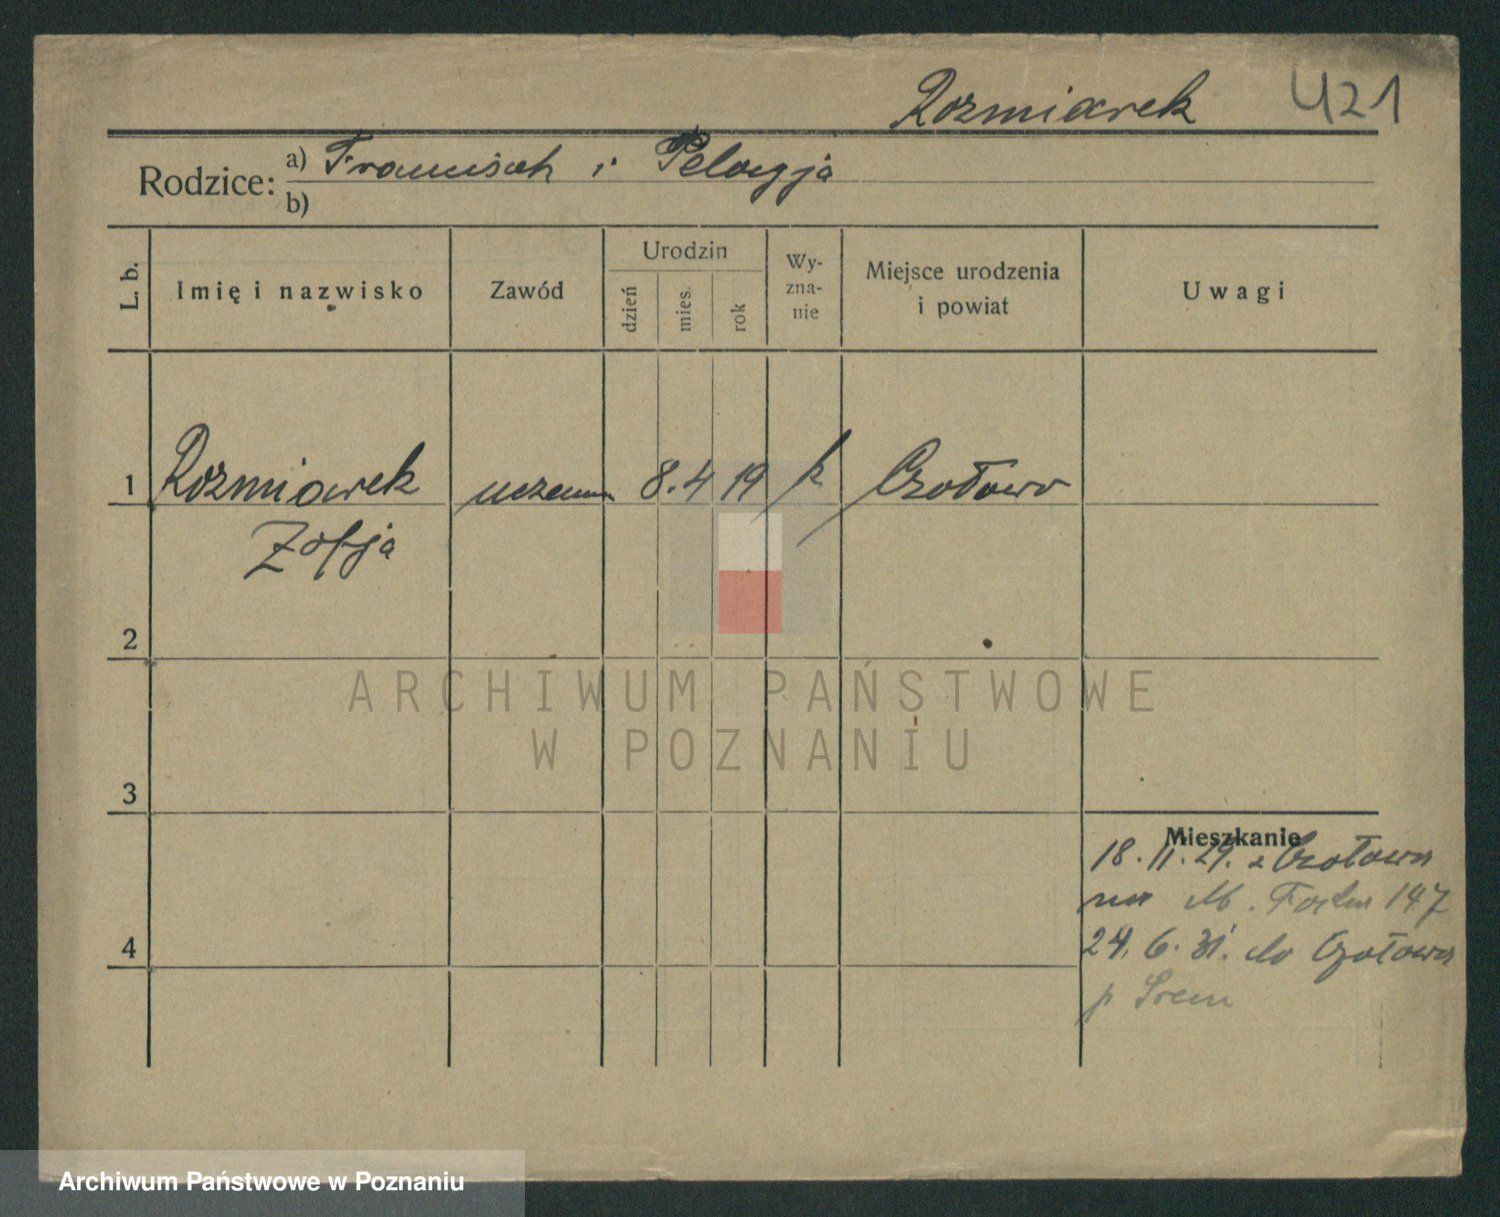 Rozmiarek 421
Rodzice: a) Franciszek i Pelagja
b)
L. b.
Imię i nazwisko
Zawód
Urodzin
dzień
mies.
rok
Wy-
zna-
nie
Miejsce urodzenia
i powiat
Uwagi
1 Rozmiarek uczenn 8. 4 19 k Czołowo
Zofja
2
ARCHIWUM PAŃSTWOWE
W POZNANIU
3
Mieszkanie
18. 11. 29. z Czołowa
na M. Focha 147
4
24. 6. 31. do Czołowa
p Śrem
Archiwum Państwowe w Poznaniu